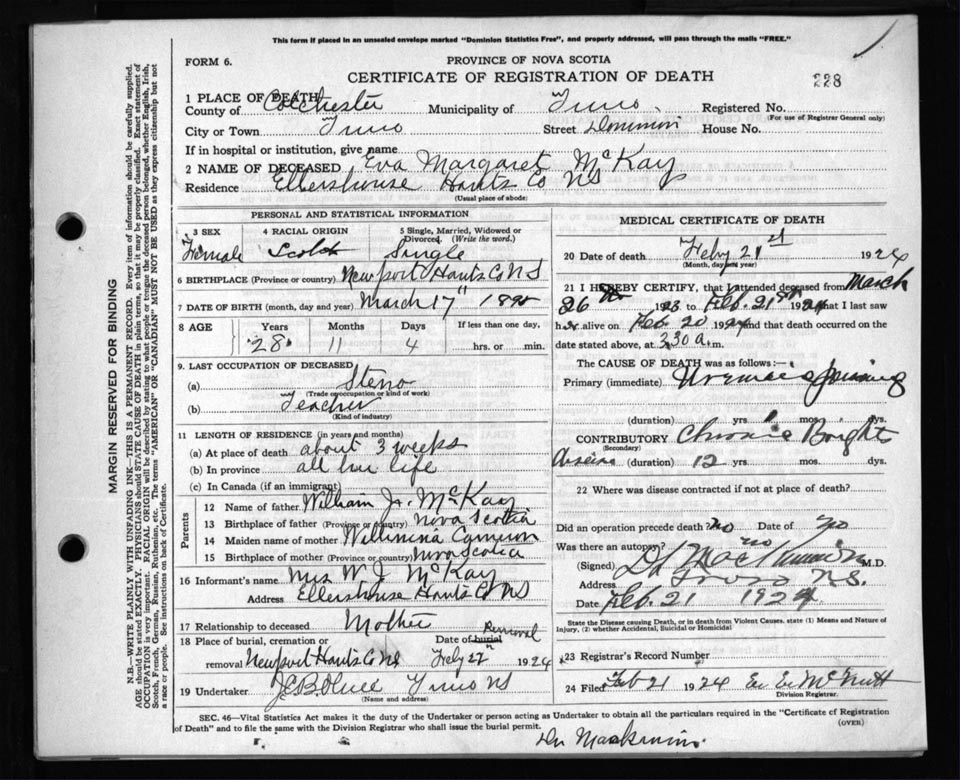 This form if placed in an unsealed envelope marked "Dominion Statistics Free", and properly addressed, will pass through the mails "FREE."
FORM 6.
PROVINCE OF NOVA SCOTIA
CERTIFICATE OF REGISTRATION OF DEATH
228
1 PLACE OF DEATH
County of Colchester Municipality of Truro. Registered No.
(For use of Registrar General only)
City or Town Truro Street Dominion House No.
If in hospital or institution, give name
2 NAME OF DECEASED Eva Margaret McKay
Residence Ellershouse Hants Co NS
(Usual place of abode)
PERSONAL AND STATISTICAL INFORMATION
3 SEX 4 RACIAL ORIGIN 5 Single, Married, Widowed or Divorced. (Write the word.)
Female Scotch Single
6 BIRTHPLACE (Province or country) Newport Hants Co NS
7 DATE OF BIRTH (month, day and year) March 17" 1895
8 AGE Years Months Days If less than one day,
28 11 4 hrs. or min.
9. LAST OCCUPATION OF DECEASED
(a) Steno
(Trade or occupation or kind of work)
(b) Teacher
(Kind of industry)
11 LENGTH OF RESIDENCE (in years and months)
(a) At place of death about 3 weeks
(b) In province all her life
(c) In Canada (if an immigrant)
Parents
12 Name of father William J. McKay
13 Birthplace of father (Province or country) Nova Scotia
14 Maiden name of mother Willinina Cameron
15 Birthplace of mother (Province or country) Nova Scotia
16 Informant's name Mrs W. J. McKay
Address Ellershouse Hants Co NS
17 Relationship to deceased Mother
18 Place of burial, cremation or Date of burial Removal
removal Newport Hants Co NS Feby 22" 1924
19 Undertaker Truro NS
(Name and address)
MEDICAL CERTIFICATE OF DEATH
20 Date of death Feby 21st 1924
(Month, day and year)
21 I HEREBY CERTIFY, that I attended deceased from March
26th 1923 to Feb. 21st 1924 that I last saw
her alive on Feb 20 1924 and that death occurred on
date stated above, at 3.30 a.m.
The CAUSE OF DEATH was as follows:—
Primary (immediate) Uraemic Poisoning
(duration) yrs mos. dys.
CONTRIBUTORY Chronic Brights
(Secondary)
Disease (duration) 12 yrs. mos. dys.
22 Where was disease contracted if not at place of death?
Did an operation precede death? no Date of no
Was there an autopsy? no
(Signed) M.D.
Address Truro N.S.
Date Feb. 21 1924
State the Disease causing Death, or in death from Violent Causes, state (1) Means and Nature of
Injury, (2) whether Accidental, Suicidal or Homicidal)
23 Registrar's Record Number
24 Filed Feb 21 1924 McNutt
Division Registrar.
SEC. 46—Vital Statistics Act makes it the duty of the Undertaker or person acting as Undertaker to obtain all the particulars required in the "Certificate of Registration
of Death" and to file the same with Division Registrar who shall issue the burial permit.
(OVER)
MARGIN RESERVED FOR BINDING
N.B.—WRITE PLAINLY WITH UNFADING INK—THIS IS A PERMANENT RECORD. Every item of information should be carefully supplied.
AGE should be stated EXACTLY. PHYSICIANS should STATE CAUSE OF DEATH in plain terms, so that it may be properly classified. Exact statement of
OCCUPATION is very important. RACIAL ORIGIN will be described by stating to what people or tongue the deceased person belonged, whether English, Irish,
Scotch, French, German, Russian, Ruthenian, etc. The terms "AMERICAN" or "CANADIAN" MUST NOT BE USED as they express citizenship but not
a race or people. See instructions on back of Certificate.